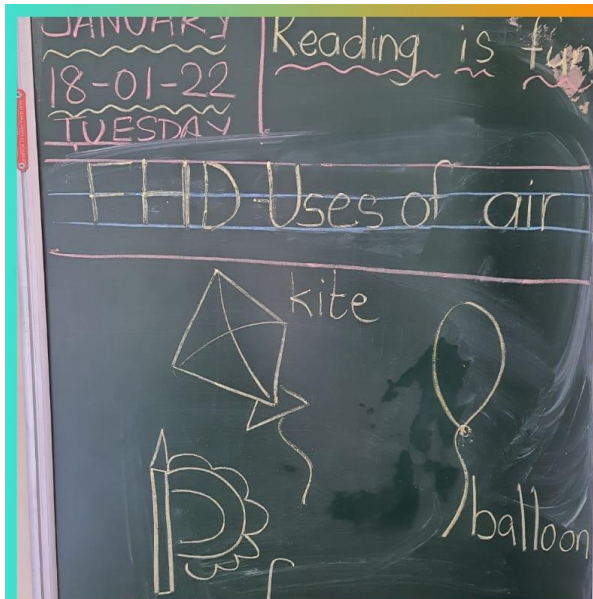 JANUARY
18-01-22
TUESDAY
Reading is fun
FHD-Uses of air
kite
balloon